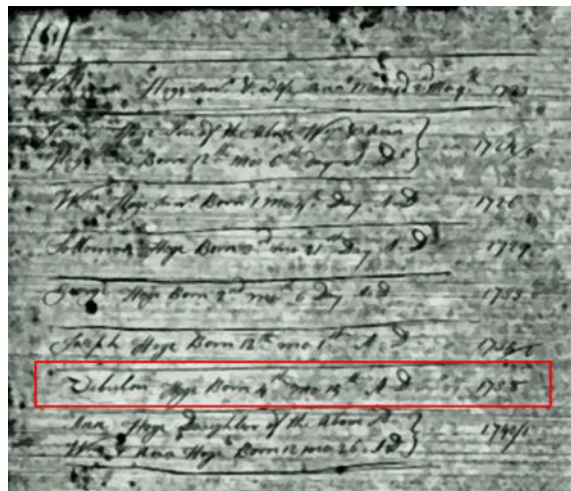 William Hoge Junr & wife Ann Married 2 Mo 9th 1723
James Hoge Son of the Above Wm & Ann
Hoge Born 12th Mo 6th Day A D 1724/5
Wm Hoge Junr Born 1 Mo 9th Day A D 1726
Sollomon Hoge Born 3d mo 21st Day A D 1729
George Hoge Born 2nd mo 6 Day A D 1733
Joseph Hoge Born 12th mo 1st A D
Zebulon Hoge Born 4th mo 15th A D 1738
Ann Hoge Daughter of the Above Sd
Wm & Ann Hoge Born 12 mo 26 A D 1740/1